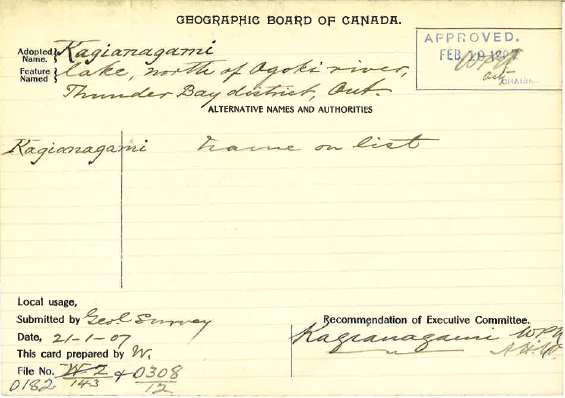 GEOGRAPHIC BOARD OF CANADA.
APPROVED.
Adopted Name. } Kagianagami
Feature Named } lake, north of Ogoki river,
Thunder Bay district, Ont.
ALTERNATIVE NAMES AND AUTHORITIES
Kagianagami name on list
Local usage,
Submitted by Geol. Survey
Date, 21-1-07
This card prepared by W.
File No. W-2/143 & 0308/12
0182
Recommendation of Executive Committee.
Kagianagami